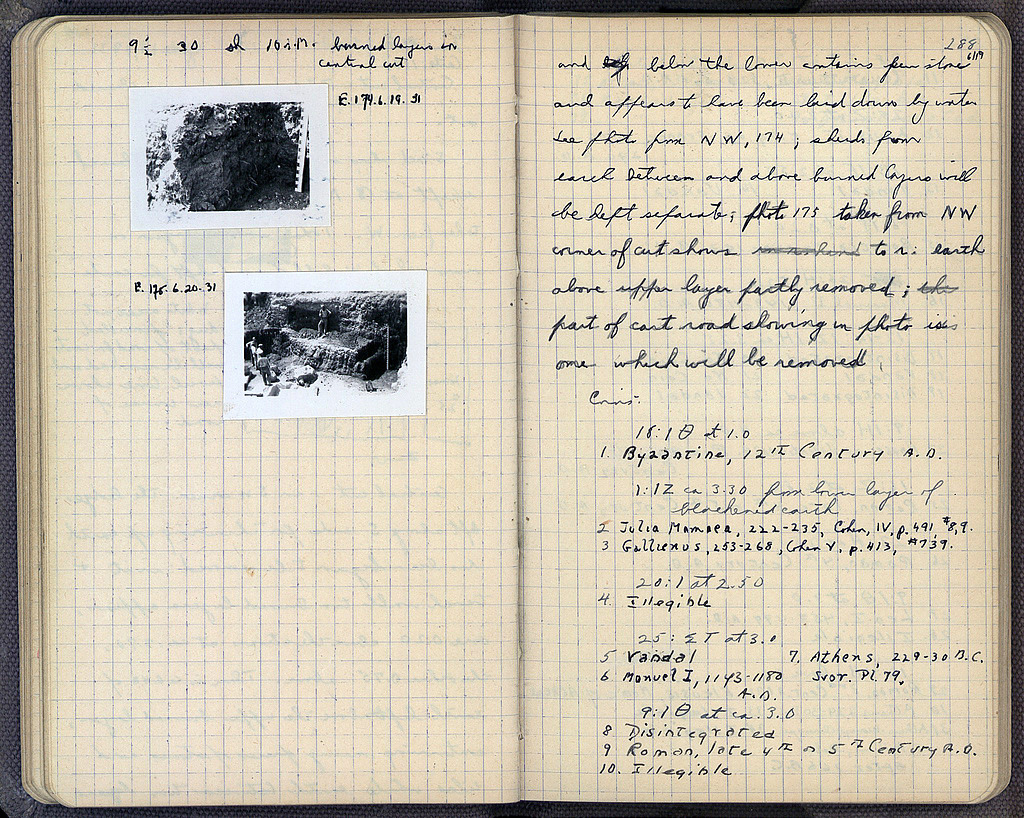 9 1/2 30 sh 10 a.m. burned layers in
central cut
E. 174.6.19.31
E. 175.6.20.31
288
6/19
and below the lower contains few stones
and appears to have been laid down by water
see photo from NW, 174; sherds from
earth between and above burned layers will
be left separate; photo 175 taken from NW
corner of cut shows to r: earth
above upper layer partly removed; the
part of cart road showing in photo is
one which will be removed.
Coins:
18:1 Θ at 1.0
1. Byzantine, 12TH Century A.D.
1:1Z ca 3.30 from lower layer of
blackened earth
2 Julia Mamaea, 222-235, Cohen, IV, p. 491, #8,9.
3 Gallienus, 253-268, Cohen V, p. 413, #739.
20:1 at 2.50
4. Illegible
25: ΣT at 3.0
5 Vandal
7. Athens, 229-30 B.C.
6 Manuel I, 1143-1180
A.D.
Svor. Pl. 79.
9:1 Θ at ca. 3.0
8 Disintegrated
9 Roman, late 4TH or 5TH Century A.D.
10. Illegible